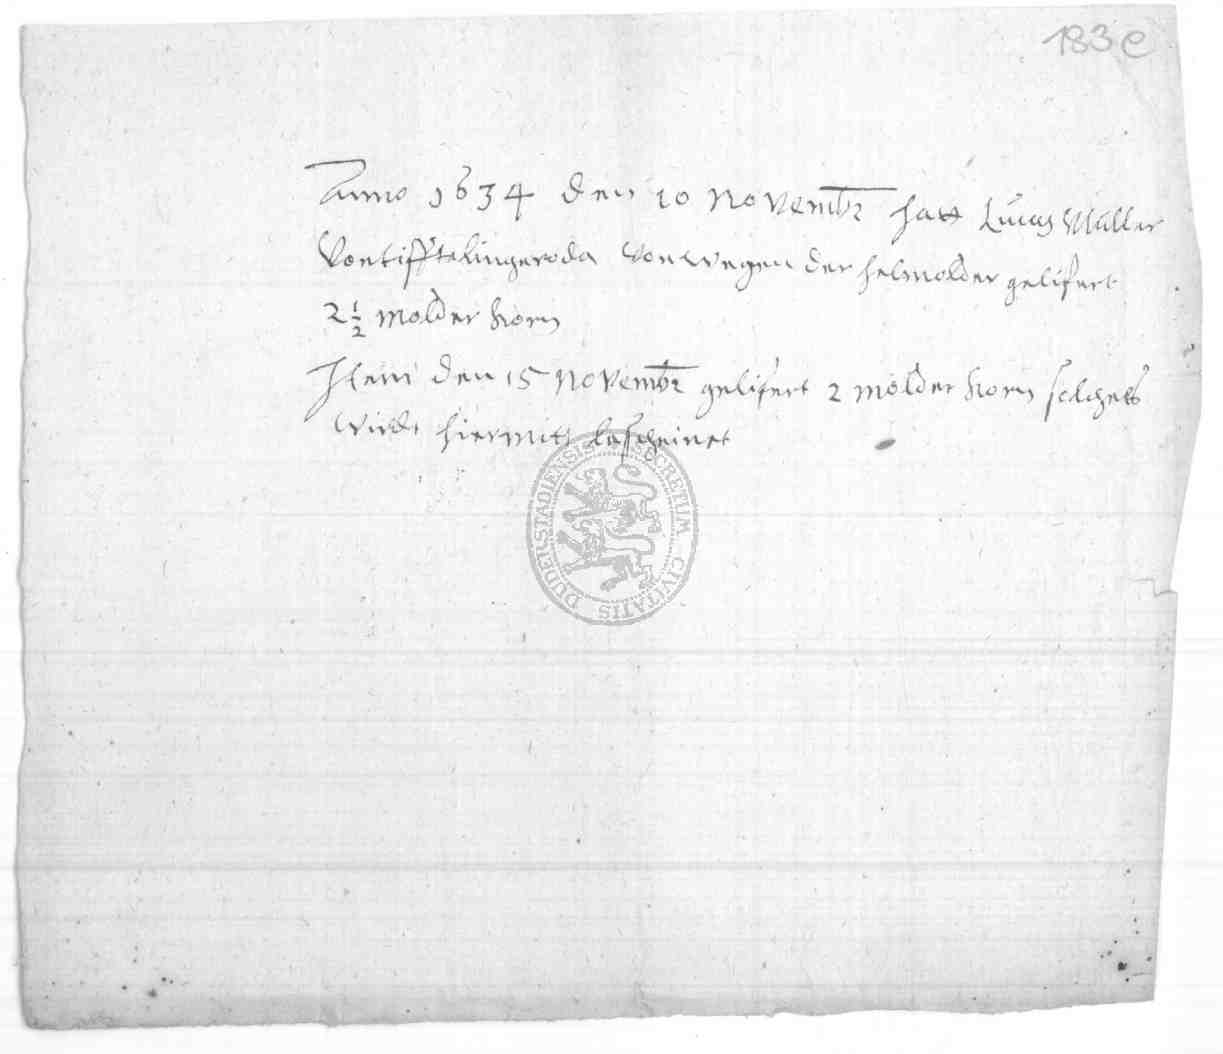 183e
Anno 1634 den 10 Novembr hatt Lucas Müller
Von tifftelingeroda Von wegen der helmolder gelifert
2 1/2 molder korn
Item den 15 Novembr gelifert 2 molder korn solches
wirdt hiermitt bescheinet
SECRETUM CIVITATIS DUDERSTADIENSIS